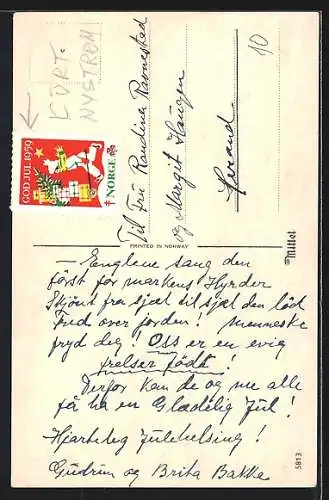 KURT-
NYSTRØM
GOD JUL 1959
NORGE
Til Fru Randine Ravnestad
og Margit Haugen
Herand
10
PRINTED IN NORWAY
Mittet
5813
– Englene sang den
först for markens Hyrder
Skjönt fra sjæl til sjæl den löd
Fred over jorden! Menneske
fryd deg! Oss er en evig
frelser födt!
Derfor kan de og me alle
få ha en Glædelig Jul!
Hjarteleg Julehelsing!
Gudrun og Brita Bakke